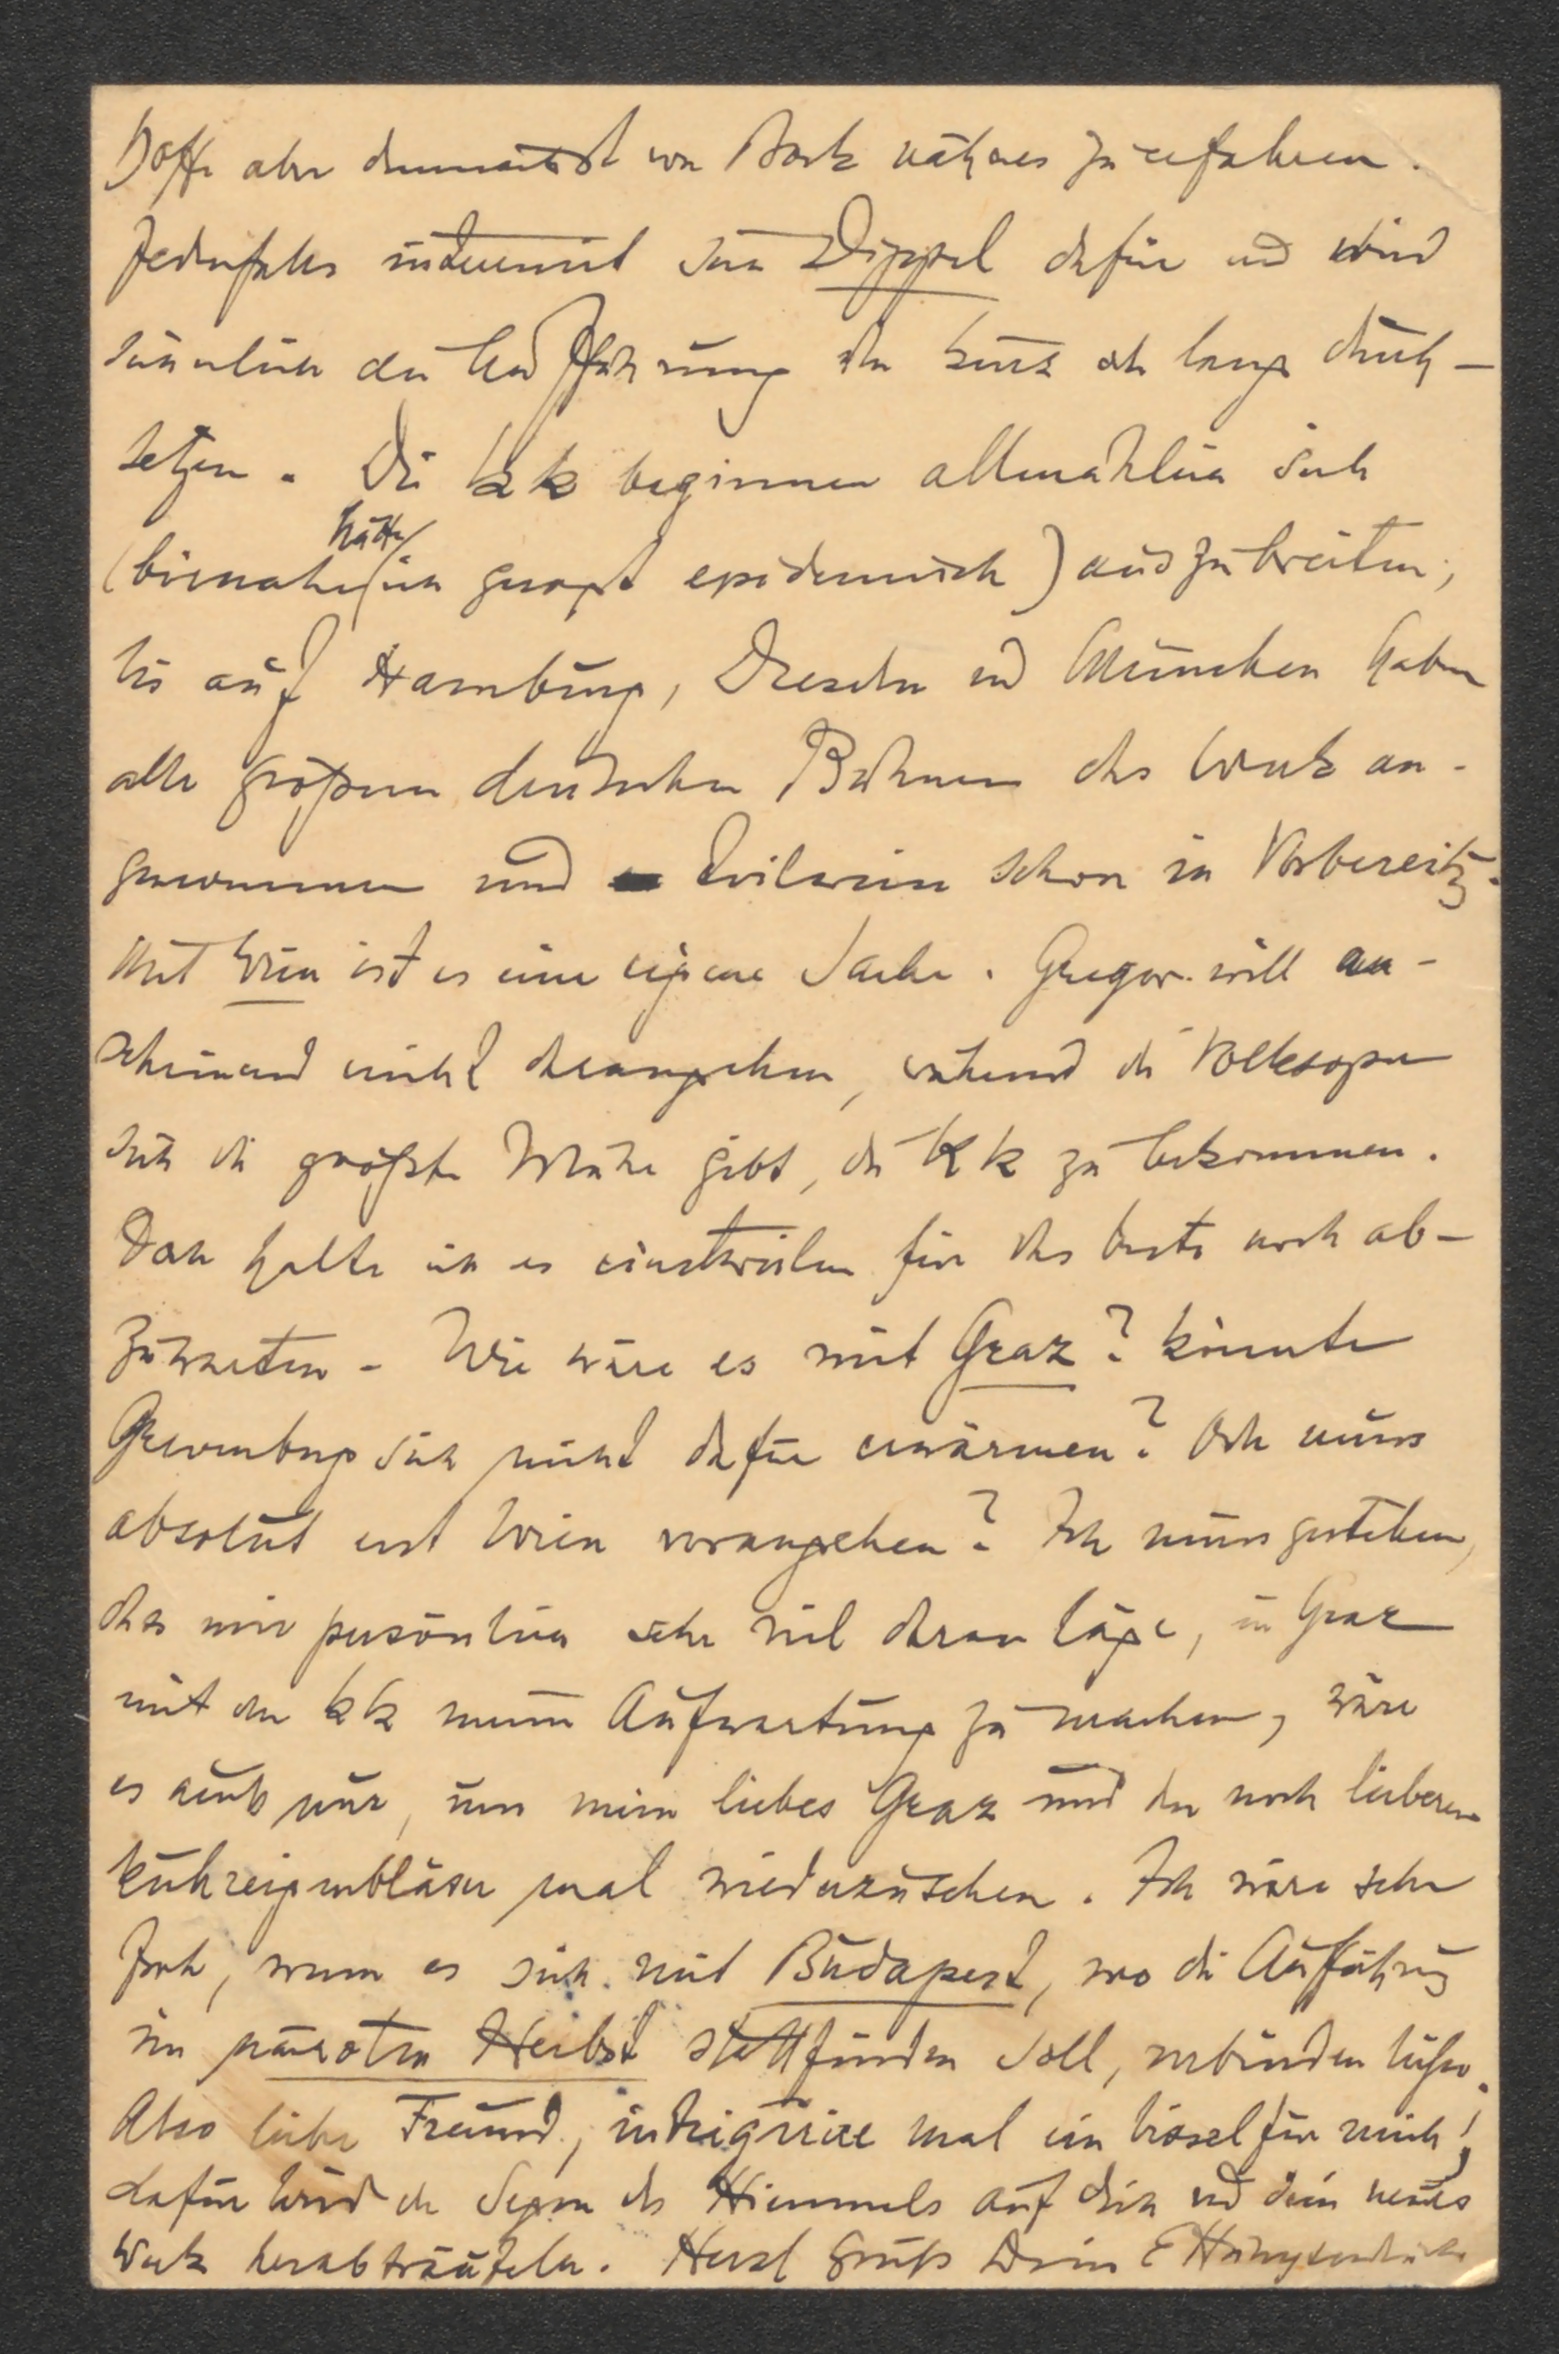 Hoffe aber demnächst von Bock näheres zu erfahren.
Jedenfalls interessirt sich Dippel dafür und wird
sicherlich die Aufführung über kurz oder lang durch-
setzen. Die KK beginnen allmählich sich
(beinahe hätte ich gesagt epidemisch) auszubreiten;
bis auf Hamburg, Dresden und München haben
alle größeren deutschen Bühnen das Werk an-
genommen und teilweise schon in Vorbereitg.
Mit Wien ist es eine eigene Sache. Gregor will an-
scheinend nicht drangehen, während die Volksoper
sich die größte Mühe gibt, die KK zu bekommen.
Doch halte ich es einstweilen für das beste noch ab-
zuwarten - Wie wäre es mit Graz? könnte
Grevenberg sich nicht dafür erwärmen? Oder muss
absolut erst Wien vorangehen? Ich muss gestehen,
dass mir persönlich sehr viel daran läge, in Graz
mit den KK meine Aufwartung zu machen, wäre
es auch nur, um mein liebes Graz und den noch lieberen
Kuhreigenbläser mal wiederzusehen. Ich wäre sehr
froh, wenn es sich mit Budapest, wo die Aufführung
im nächsten Herbst stattfinden soll, verbinden ließe.
Also lieber Freund, intriguire mal ein bissel für mich!
dafür wird der Segen des Himmels auf dich und dein neues
Werk herabträufeln. Herzl Gruß Dein E Humperdinck